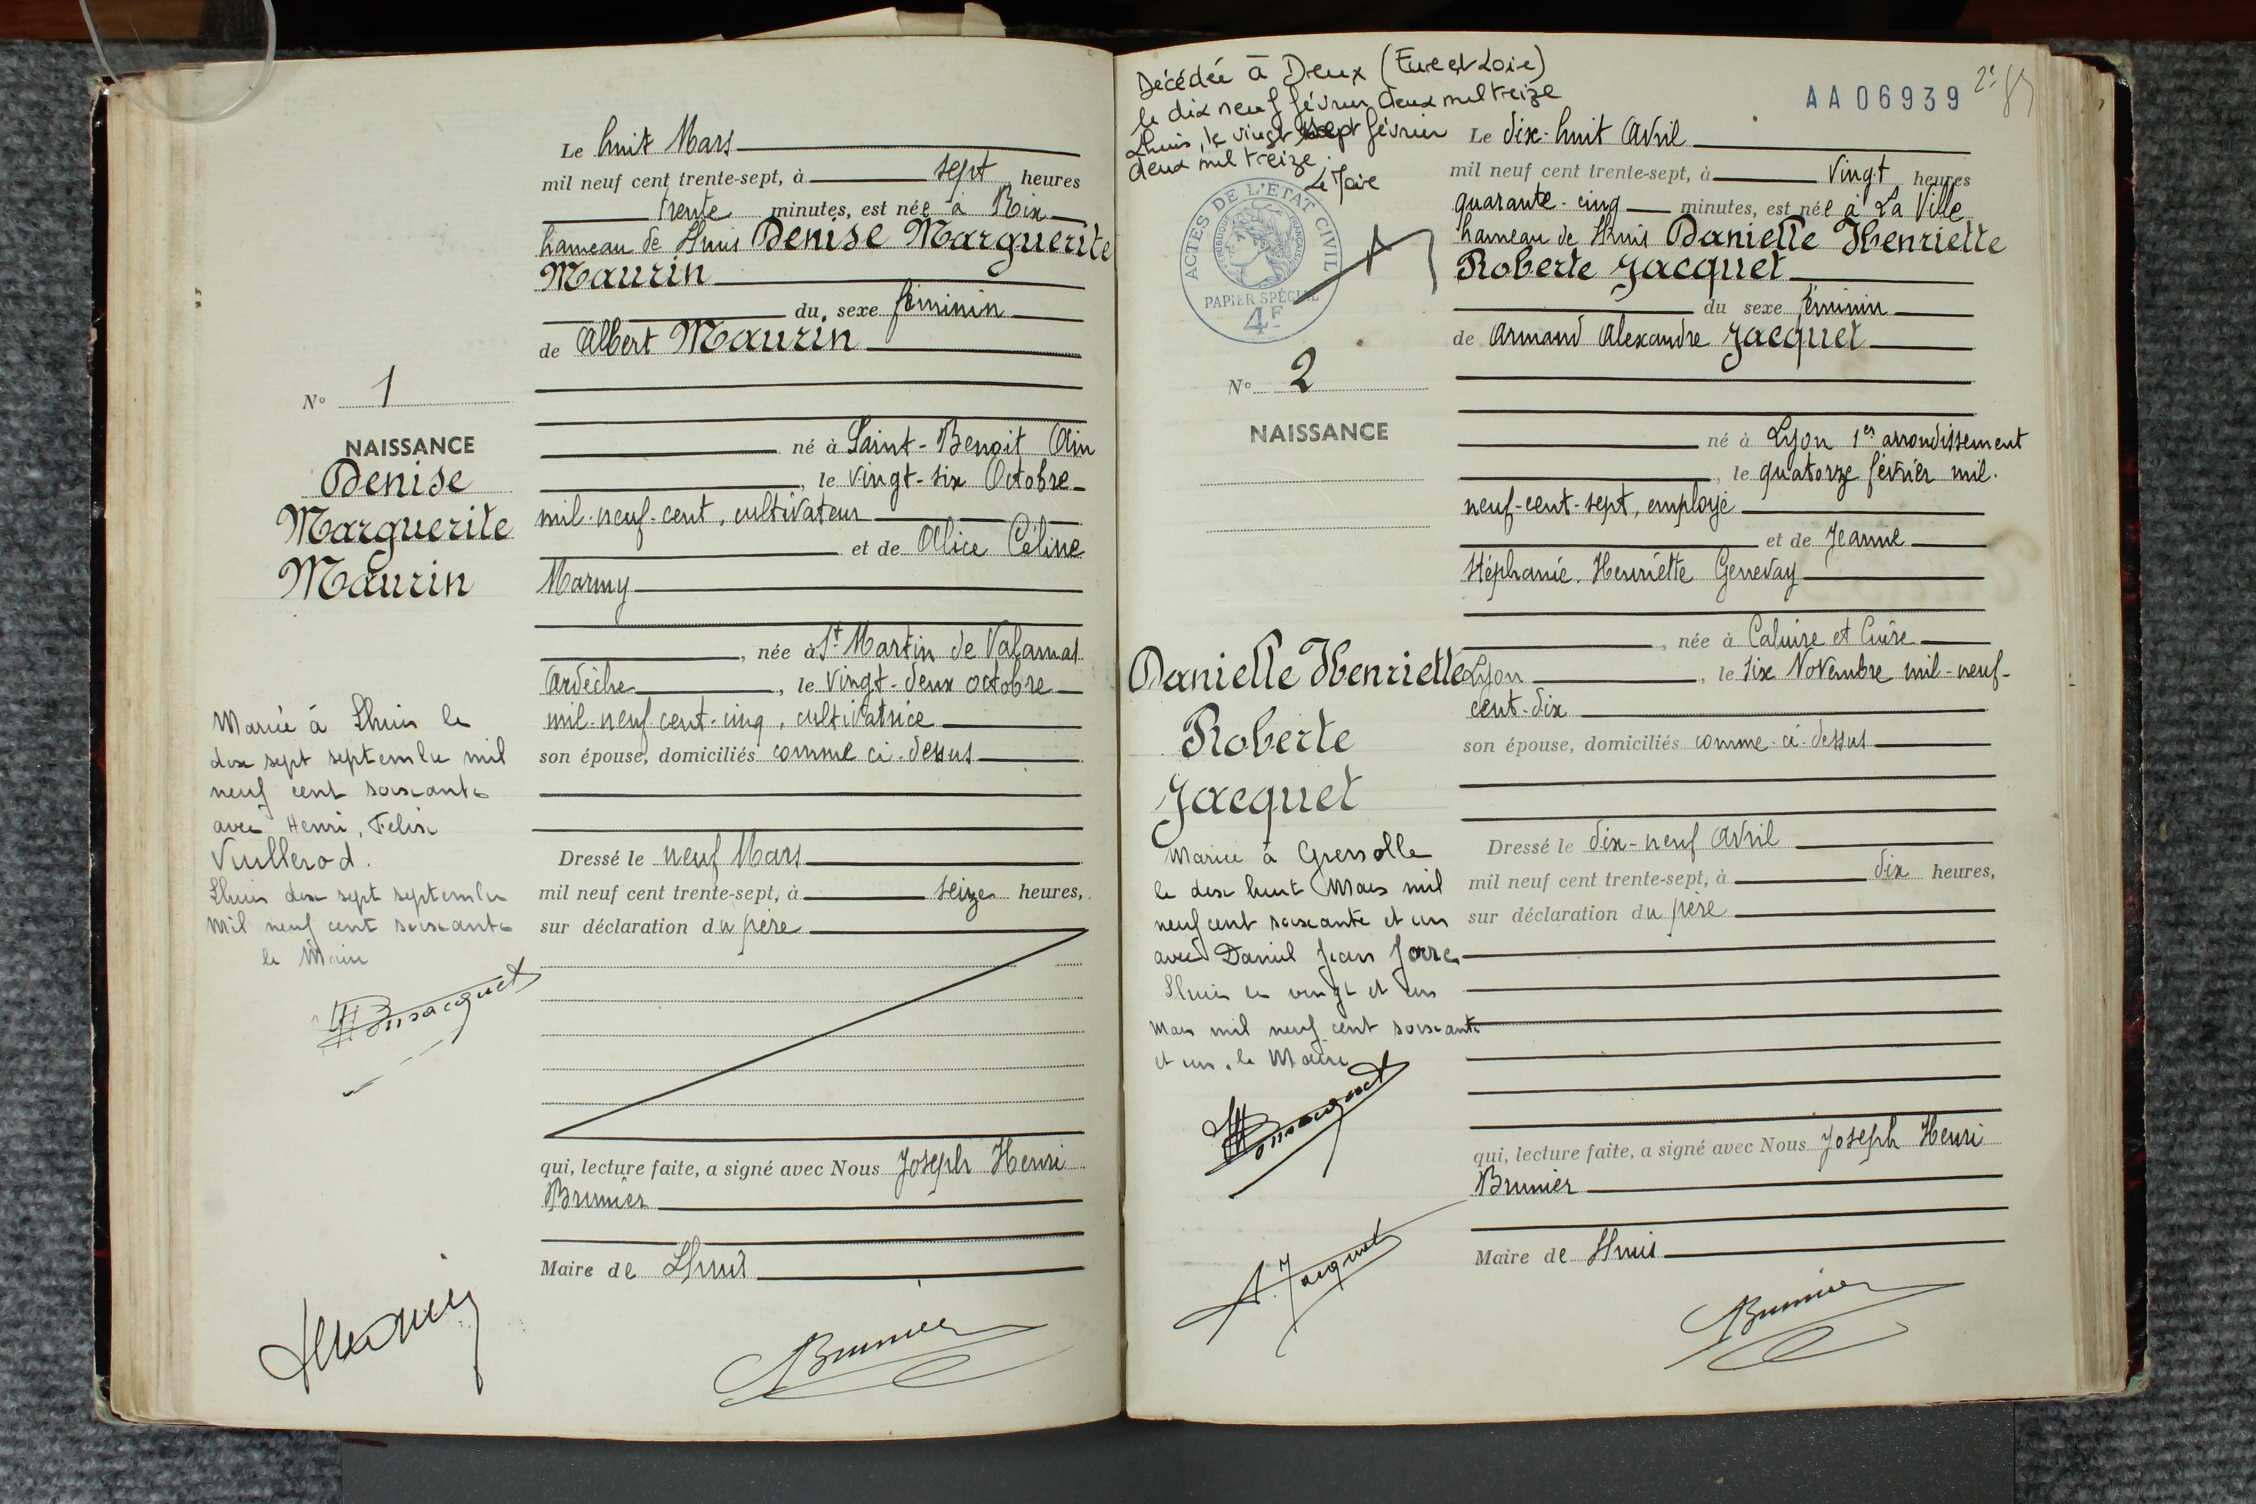 Le huit Mars
mil neuf cent trente-sept, à sept heures
trente minutes, est née à Rix
hameau de Lhuis Denise Marguerite
Maurin
du sexe féminin
de Albert Maurin
né à Saint-Benoit Ain
, le vingt-six Octobre
mil-neuf-cent, cultivateur
et de Alice Céline
Marmy
, née à St Martin de Valamas
Ardèche, le vingt-deux octobre
mil-neuf cent-cinq, cultivatrice
son épouse, domiciliés comme ci-dessus
Dressé le neuf Mars
mil neuf cent trente-sept, à seize heures,
sur déclaration du père
qui, lecture faite, a signé avec Nous Joseph Henri
Brunier
Maire de Lhuis
Brunier
No 1
NAISSANCE
Denise
Marguerite
Maurin
Mariée à Lhuis le
dix sept septembre mil
neuf cent soixante
avec Henri, Felix
Vuillerod.
Lhuis dix sept septembre
Mil neuf cent soixante
le Maire
Décédée à Dreux (Eure et Loir)
le dix neuf février deux mil treize
Lhuis, le vingt sept février
deux mil treize.
Le Maire
ACTES DE L'ETAT CIVIL
REPUBLIQUE FRANÇAISE
PAPIER SPÉCIAL
4F
AA06939
No 2
NAISSANCE
Danielle Henriette
Roberte
Jacquet
Mariée à Grenoble
le dix huit Mars mil
neuf cent soixante et un
avec Daniel Jean
Lhuis le vingt et un
Mars mil neuf cent soixante
et un, le Maire
A. Jacquet
Le dix-huit Avril
mil neuf cent trente-sept, à vingt heures
quarante-cinq minutes, est née à La Ville
hameau de Lhuis Danielle Henriette
Roberte Jacquet
du sexe féminin
de Armand Alexandre Jacquet
né à Lyon 1er arrondissement
, le quatorze février mil-
neuf-cent-sept, employé
et de Jeanne
Stéphanie Henriette Genevay
, née à Caluire et Cuire
Lyon, le six Novembre mil-neuf-
cent-dix
son épouse, domiciliés comme-ci-dessus
Dressé le dix-neuf Avril
mil neuf cent trente-sept, à dix heures,
sur déclaration du père
qui, lecture faite, a signé avec Nous Joseph Henri
Brunier
Maire de Lhuis
Brunier